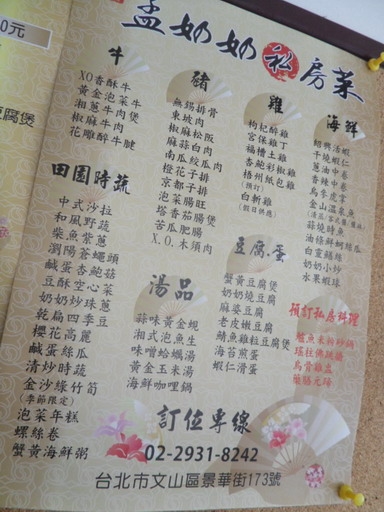 0元
腐煲
孟奶奶私房菜
牛
XO香酥牛
黃金泡菜牛
湘蔥牛肉煲
椒麻牛肉
花雕醉牛腱
豬
無錫排骨
東坡肉
椒麻松阪
麻油白肉
南瓜絞瓜肉
橙花子排
京都子排
泡菜腸旺
塔香茄腸煲
苦瓜肥腸
X.O.木須肉
雞
枸杞醉雞
宮保雞丁
福糟土雞
杏鮑彩椒雞
梧州紙包雞
(預訂)
白斬雞
(假日供應)
海鮮
紹興活蝦
干燒蝦仁
蔥油中卷
香辣中卷
烏參虎掌
金山溫泉魚
蒜燒時魚
油條鮮蚵絲瓜
白靈鱔絲
奶奶小炒
水果蝦球
田園時蔬
中式沙拉
和風野蔬
柴魚紫蔥
瀏陽蒼蠅頭
鹹蛋杏鮑菇
豆酥空心菜
奶奶炒珠蔥
乾扁四季豆
櫻花高麗
鹹蛋絲瓜
清炒時蔬
金沙綠竹筍
(季節限定)
泡菜年糕
螺絲卷
蟹黃海鮮粥
湯品
蒜味黃金蜆
湘式泡魚生
味噌蛤蠣湯
黃金玉米湯
海鮮咖哩鍋
豆腐.蛋
蟹黃豆腐煲
奶奶燒豆腐
麻婆豆腐
老皮嫩豆腐
鯖魚雞粒豆腐煲
海苔煎蛋
蝦仁滑蛋
預訂私房料理
鱸魚米粉砂鍋
瑤柱佛跳牆
烏骨雞盅
藥膳元蹄
訂位專線
02-2931-8242
台北市文山區景華街173號